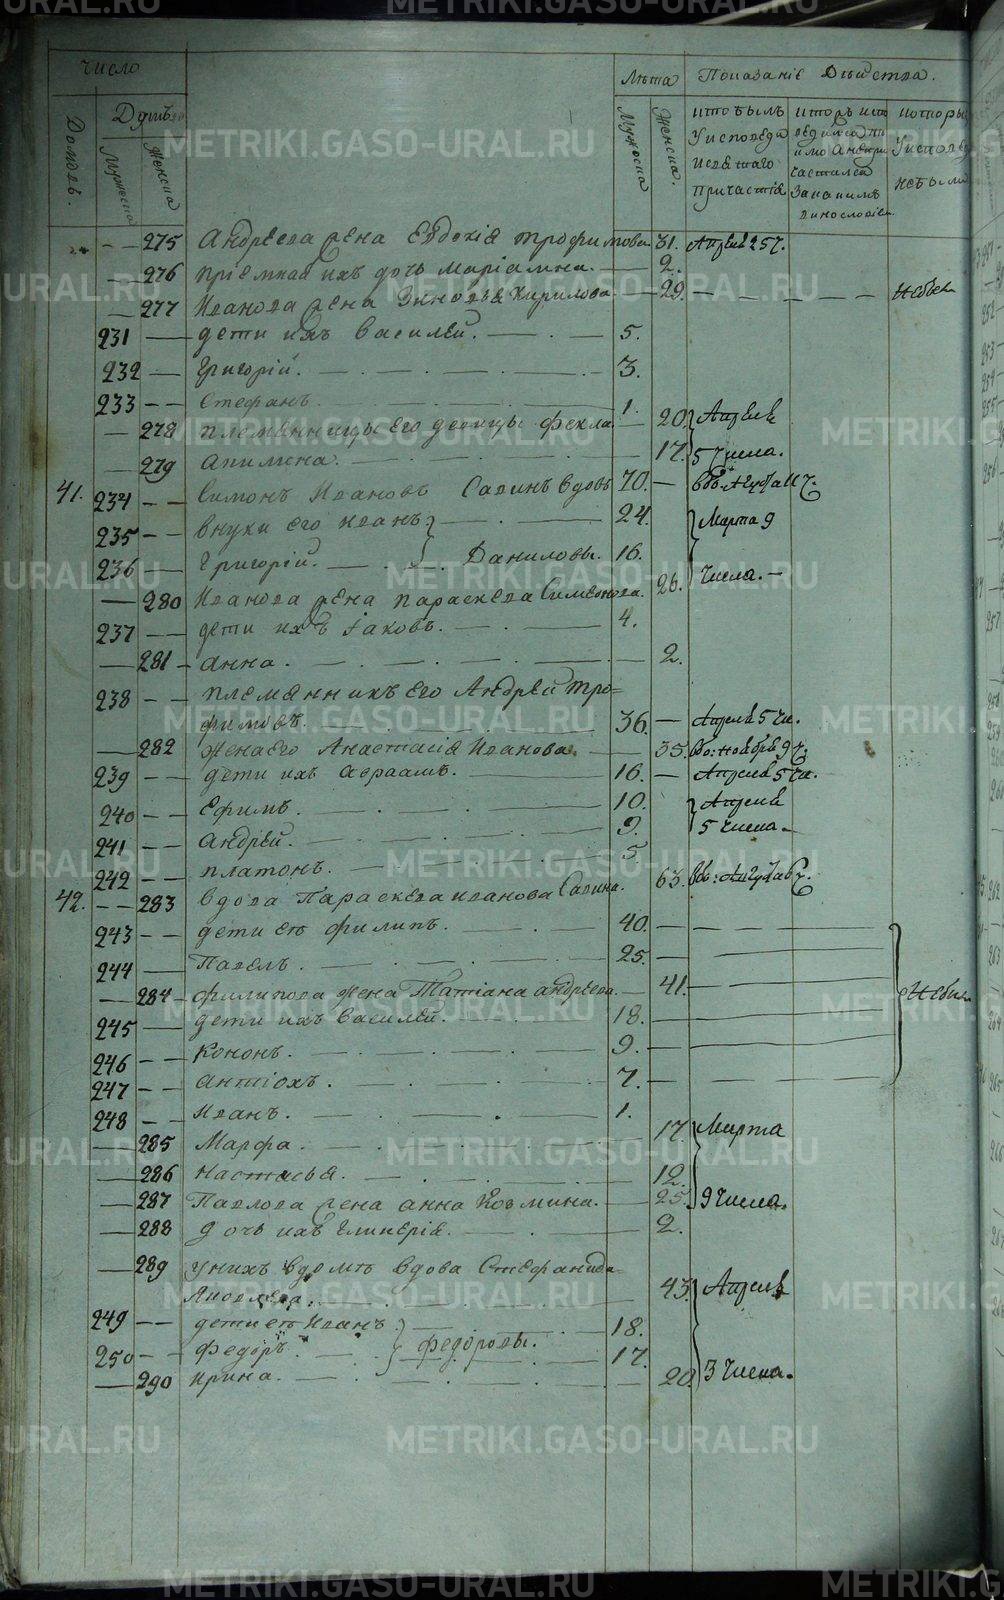 число
Лѣта Показаніе Дѣйства.
Домовъ. Душъ
Мужеска Женска
Мужеска Женска.
кто былъ у исповеди и святаго причастія
которы у исповеди небыли
275 Андреева жена Евдокія трофимова 31. Апреля 25 ч.
276 пріемная ихъ дочь Маріамна. 2.
277 Иванова жена Зиновья Кирилова 29. небыла
231 дети ихъ Василей. 5.
232 Григорій. 3.
233 Стефанъ 1.
278 племянницы его девицы Фекла 20. Апреля
279 Акилина. 17. 5 Числа.
41. 234 Симонъ Ивановъ Савинъ вдовъ 70.
235 внуки его иванъ 24. Марта 9
236 Григорій. Даниловы. 16.
Числа.
280 Иванова жена параскева Симеонова. 26.
237 дети ихъ Іаковъ. 4.
281 анна. 2.
238 племянникъ его Андрей тро=
фимовъ. 36. Апреля 5 чи.
282 жена его Анастасія Иванова 35. во: ноября 9 ч.
239 дети ихъ авраамъ. 16. Апреля 5 чи.
240 Ефимъ 10. Апреля
241 андрей. 9. 5 числа.
242 платонъ. 5.
42. 283 вдова Параскева иванова Савина. 63.
243 дети ея филипъ. 40.
244 Павелъ. 25.
284 филипова жена Татіана андреева. 41. небыли
245 дети ихъ василей. 18.
246 кононъ. 9.
247 антіохъ. 7.
248 иванъ. 1.
285 Марфа. 17. Марта
286 настасья. 12.
287 Павлова жена анна Козмина. 25. 9 числа.
288 дочь ихъ Гликерія. 2.
289 у нихъ в доме вдова Стефанида
Яковлева. 43. Апреля
249 дети ея Иванъ 18.
250 федоръ федоровы. 17.
290 ирина. 20. 3 числа.
METRIKI.GASO-URAL.RU